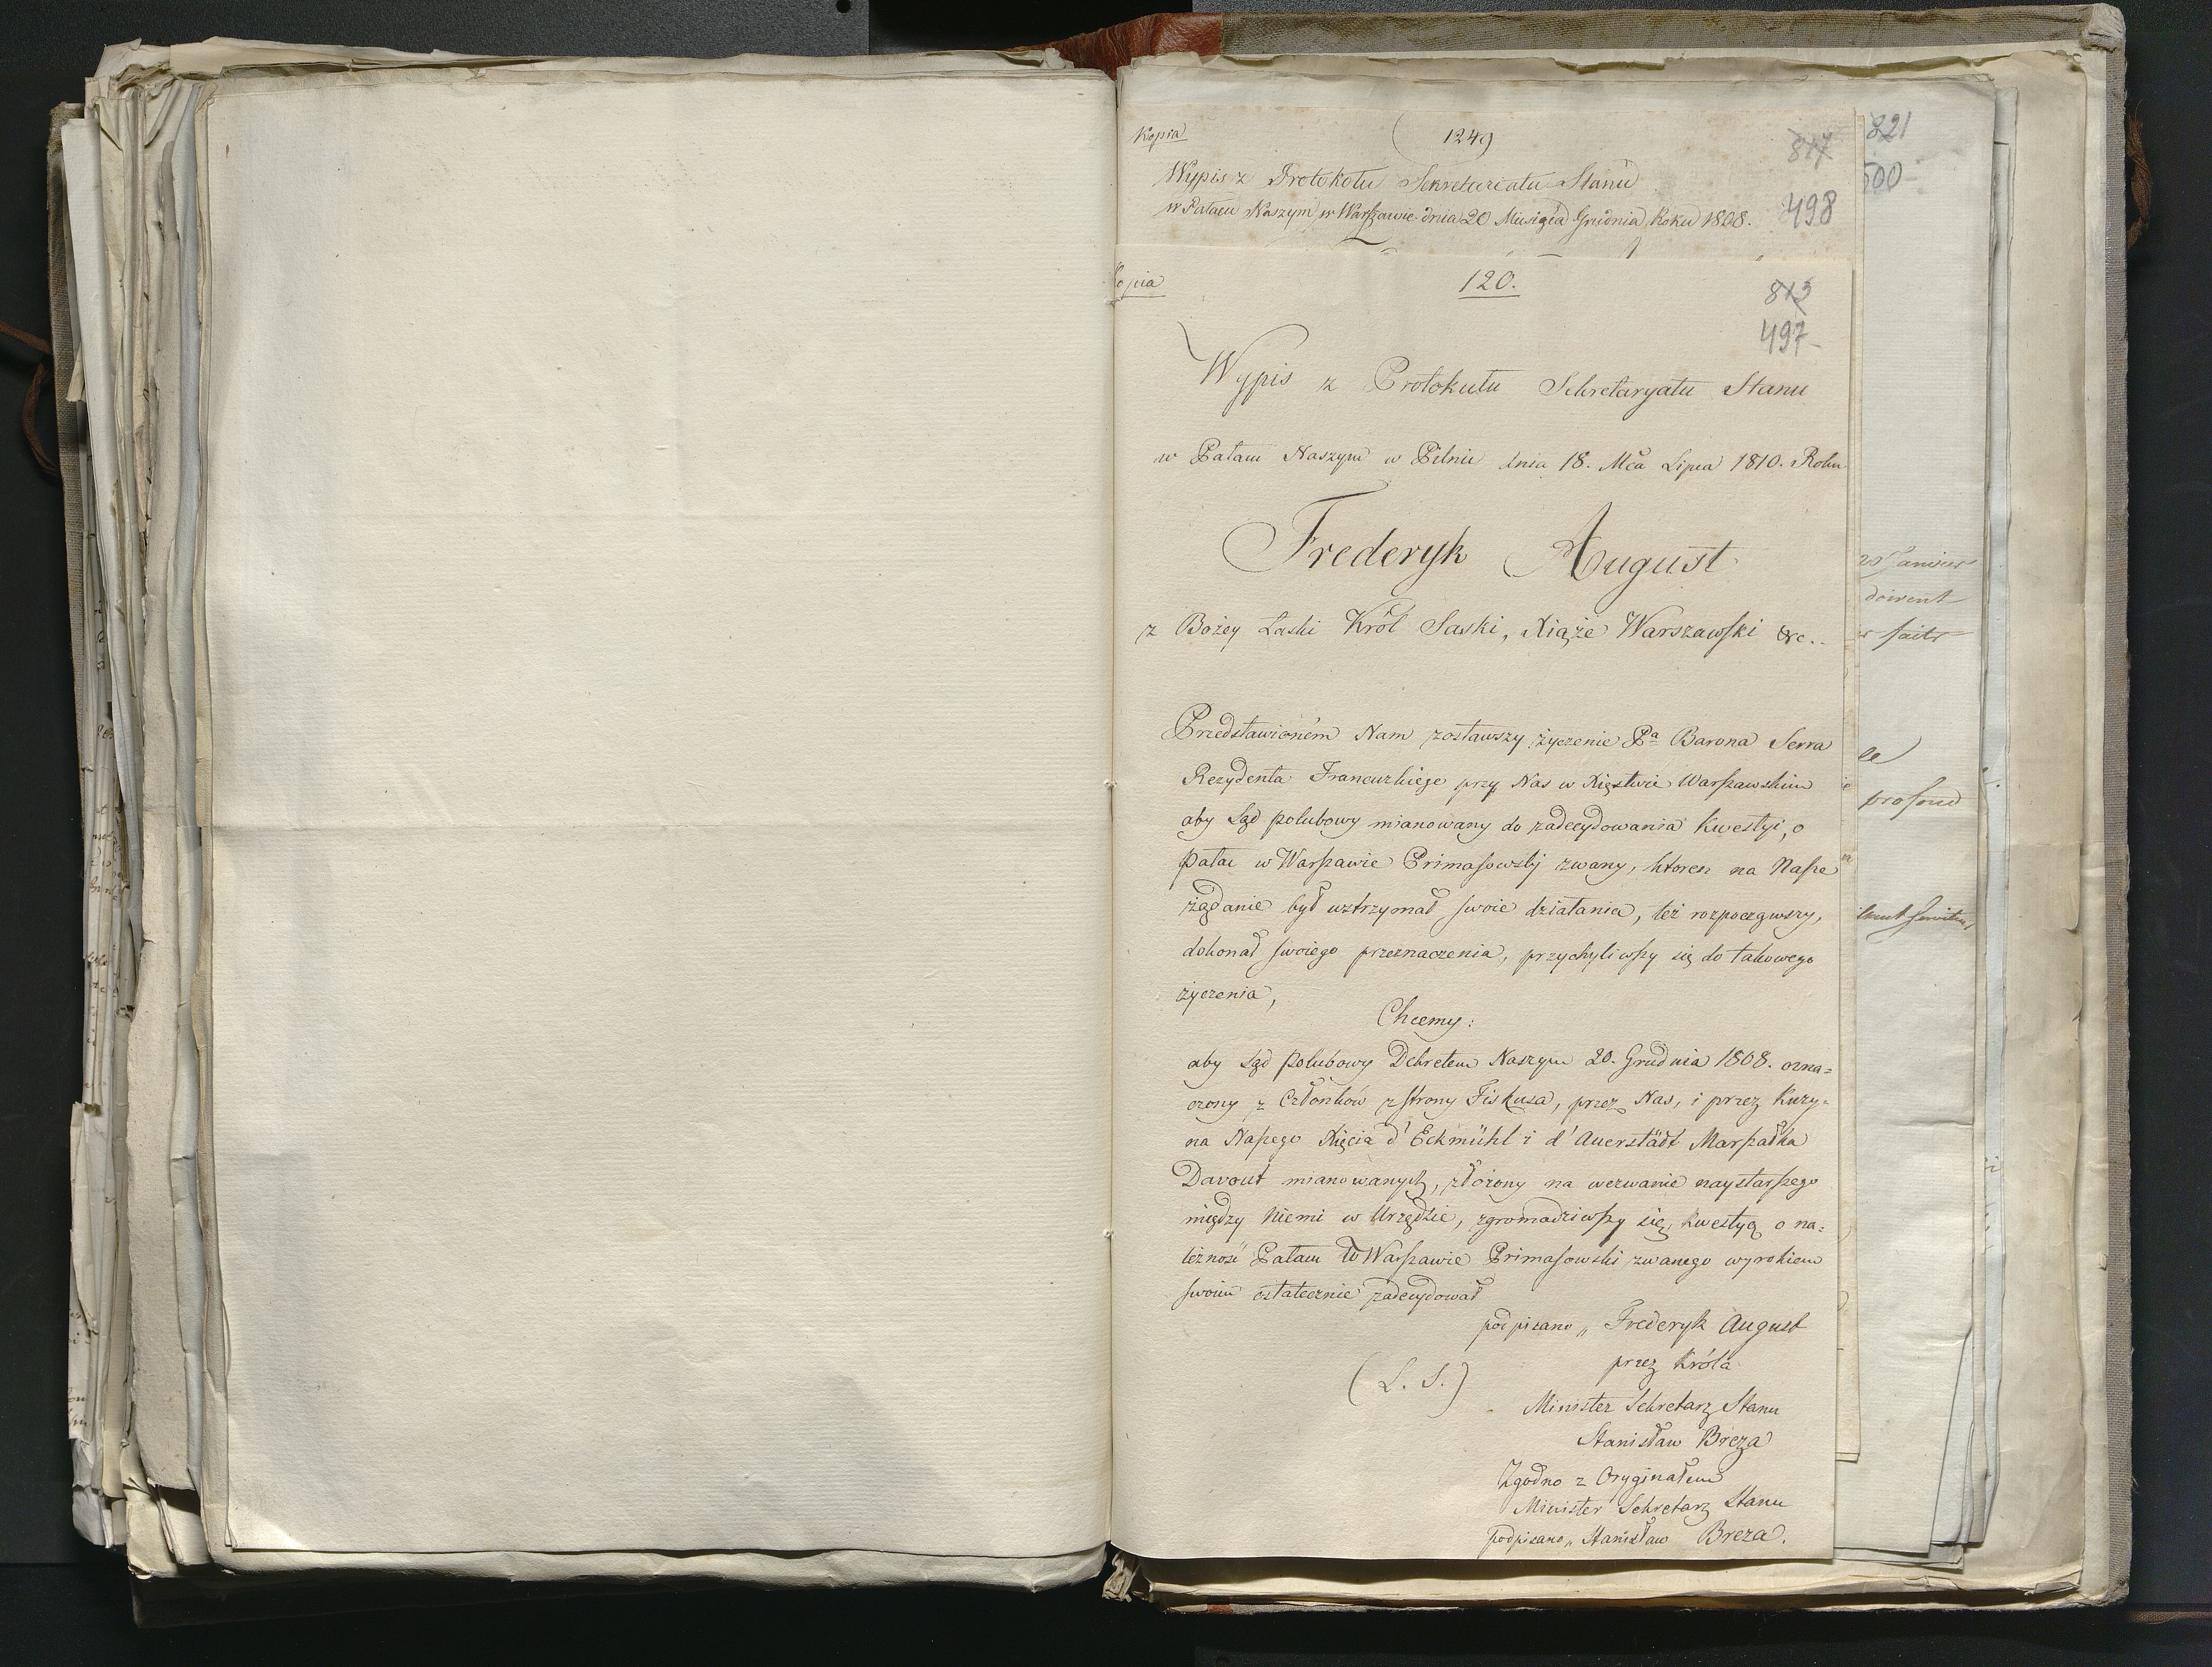 Kopia
1249
817
821
500
Wypis z Protokołu Sekretariatu Stanu
w Pałacu Naszym w Warszawie dnia 20 Miesiąca Grudnia Roku 1808.
498
opia
120.
813
497
Wypis z Protokułu Sekretaryatu Stanu
w Pałacu Naszym w Pilnic dnia 18. Mca Lipca 1810. Roku
Frederyk August
z Bożey Łaski Król Saski, Xiąże Warszawski &c..
Przedstawioném Nam zostawszy życzenie Pa Barona Serra
Rezydenta Francuzkiego przy Nas w Xięstwie Warszawskim
aby Sąd polubowy mianowany do zadecydowania kwestyi, o
pałac w Warszawie Primasowski zwany, ktoren na Nasze
żądanie był wstrzymał swoie działania, też rozpocząwszy,
dokonał swoiego przeznaczenia, przychyliwszy się do takowego
życzenia,
Chcemy:
aby Sąd polubowy Dekretem Naszym 20. Grudnia 1808. ozna=
czony z Członków z strony Fiskusa, przez Nas, i przez Kuzy=
na Naszego Xięcia d'Eckmühl i d'Auerstädt Marszałka
Davout mianowanych, złożony na wezwanie naystarszego
między niemi w Urzędzie, zgromadziwszy się, kwestyą o na=
leżność Pałacu w Warszawie Primasowski zwanego wyrokiem
swoim ostatecznie zadecydował
podpisano „ Frederyk August
przez Króla
(L. S.)
Minister Sekretarz Stanu
Stanisław Breza
Zgodno z Oryginałem
Minister Sekretarz Stanu
podpisano „ Stanisław Breza.
doivent
le
profond